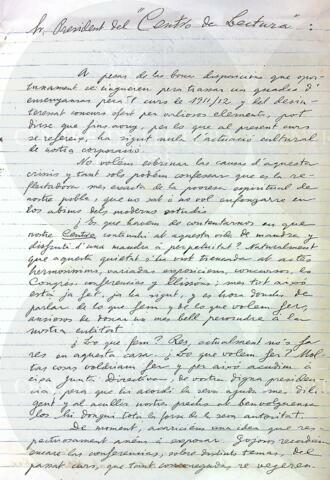 Sr. President del "Centro de Lectura":
A pesar de les bones disposicions que opor-
tunament se tingueren per a trassar un quadro d'
ensenyansas pera'l curs de 1911/12 y del desin-
teresat concurs ofert per valiosos elements, pot
dirse que fins avuy, per lo que al present curs
se refereix, ha sigut nula l'actuació cultural
de nostra corporació.
No volém esbrinar las causas d'aquesta
crisis y tant sols podém confessar que es la re-
flectadora mes exacta de la pobresa espiritual de
nostre poble, que no sab ó no vol enfonzarse en
los abims dels moderns estudis.
¿Es que havém de contentarnos en que
nostre Centre continuhi ab aquesta son de mandra y
disfruti d'una mandra á perpetuitat? Naturalment
que aquesta quietut s'ha vist trencada ab actes
hermosíssims, variadas exposicions, concursos, los
Congres, conferencias y llissons; mes tot aixó
está ja fet, ja ha sigut, y es hora donchs de
parlar de lo que fem y de lo que volem fer,
ansiosos de donar un mes bell pervindre á la
nostra entitat.
¿Lo que fem? Res, actualment no's fa
res en aquesta casa. ¿Lo que volem fer? Mol-
tas cosas voldriam fer y per aixó acudím á
eixa Junta Directiva, de vostra digna presiden-
cia, pera que hi acudi la seva ajuda mes dili-
gent y al acullir nostra precha benvolgensa
los hi dongui tota la forsa de la sem autoritat.
De moment, acariciém una idea que res-
pectuosament aném á exposar. Gojosos recordém
encare las conferencias, sobre distints temas, del
passat curs, que tant concorregudas se vegeren.